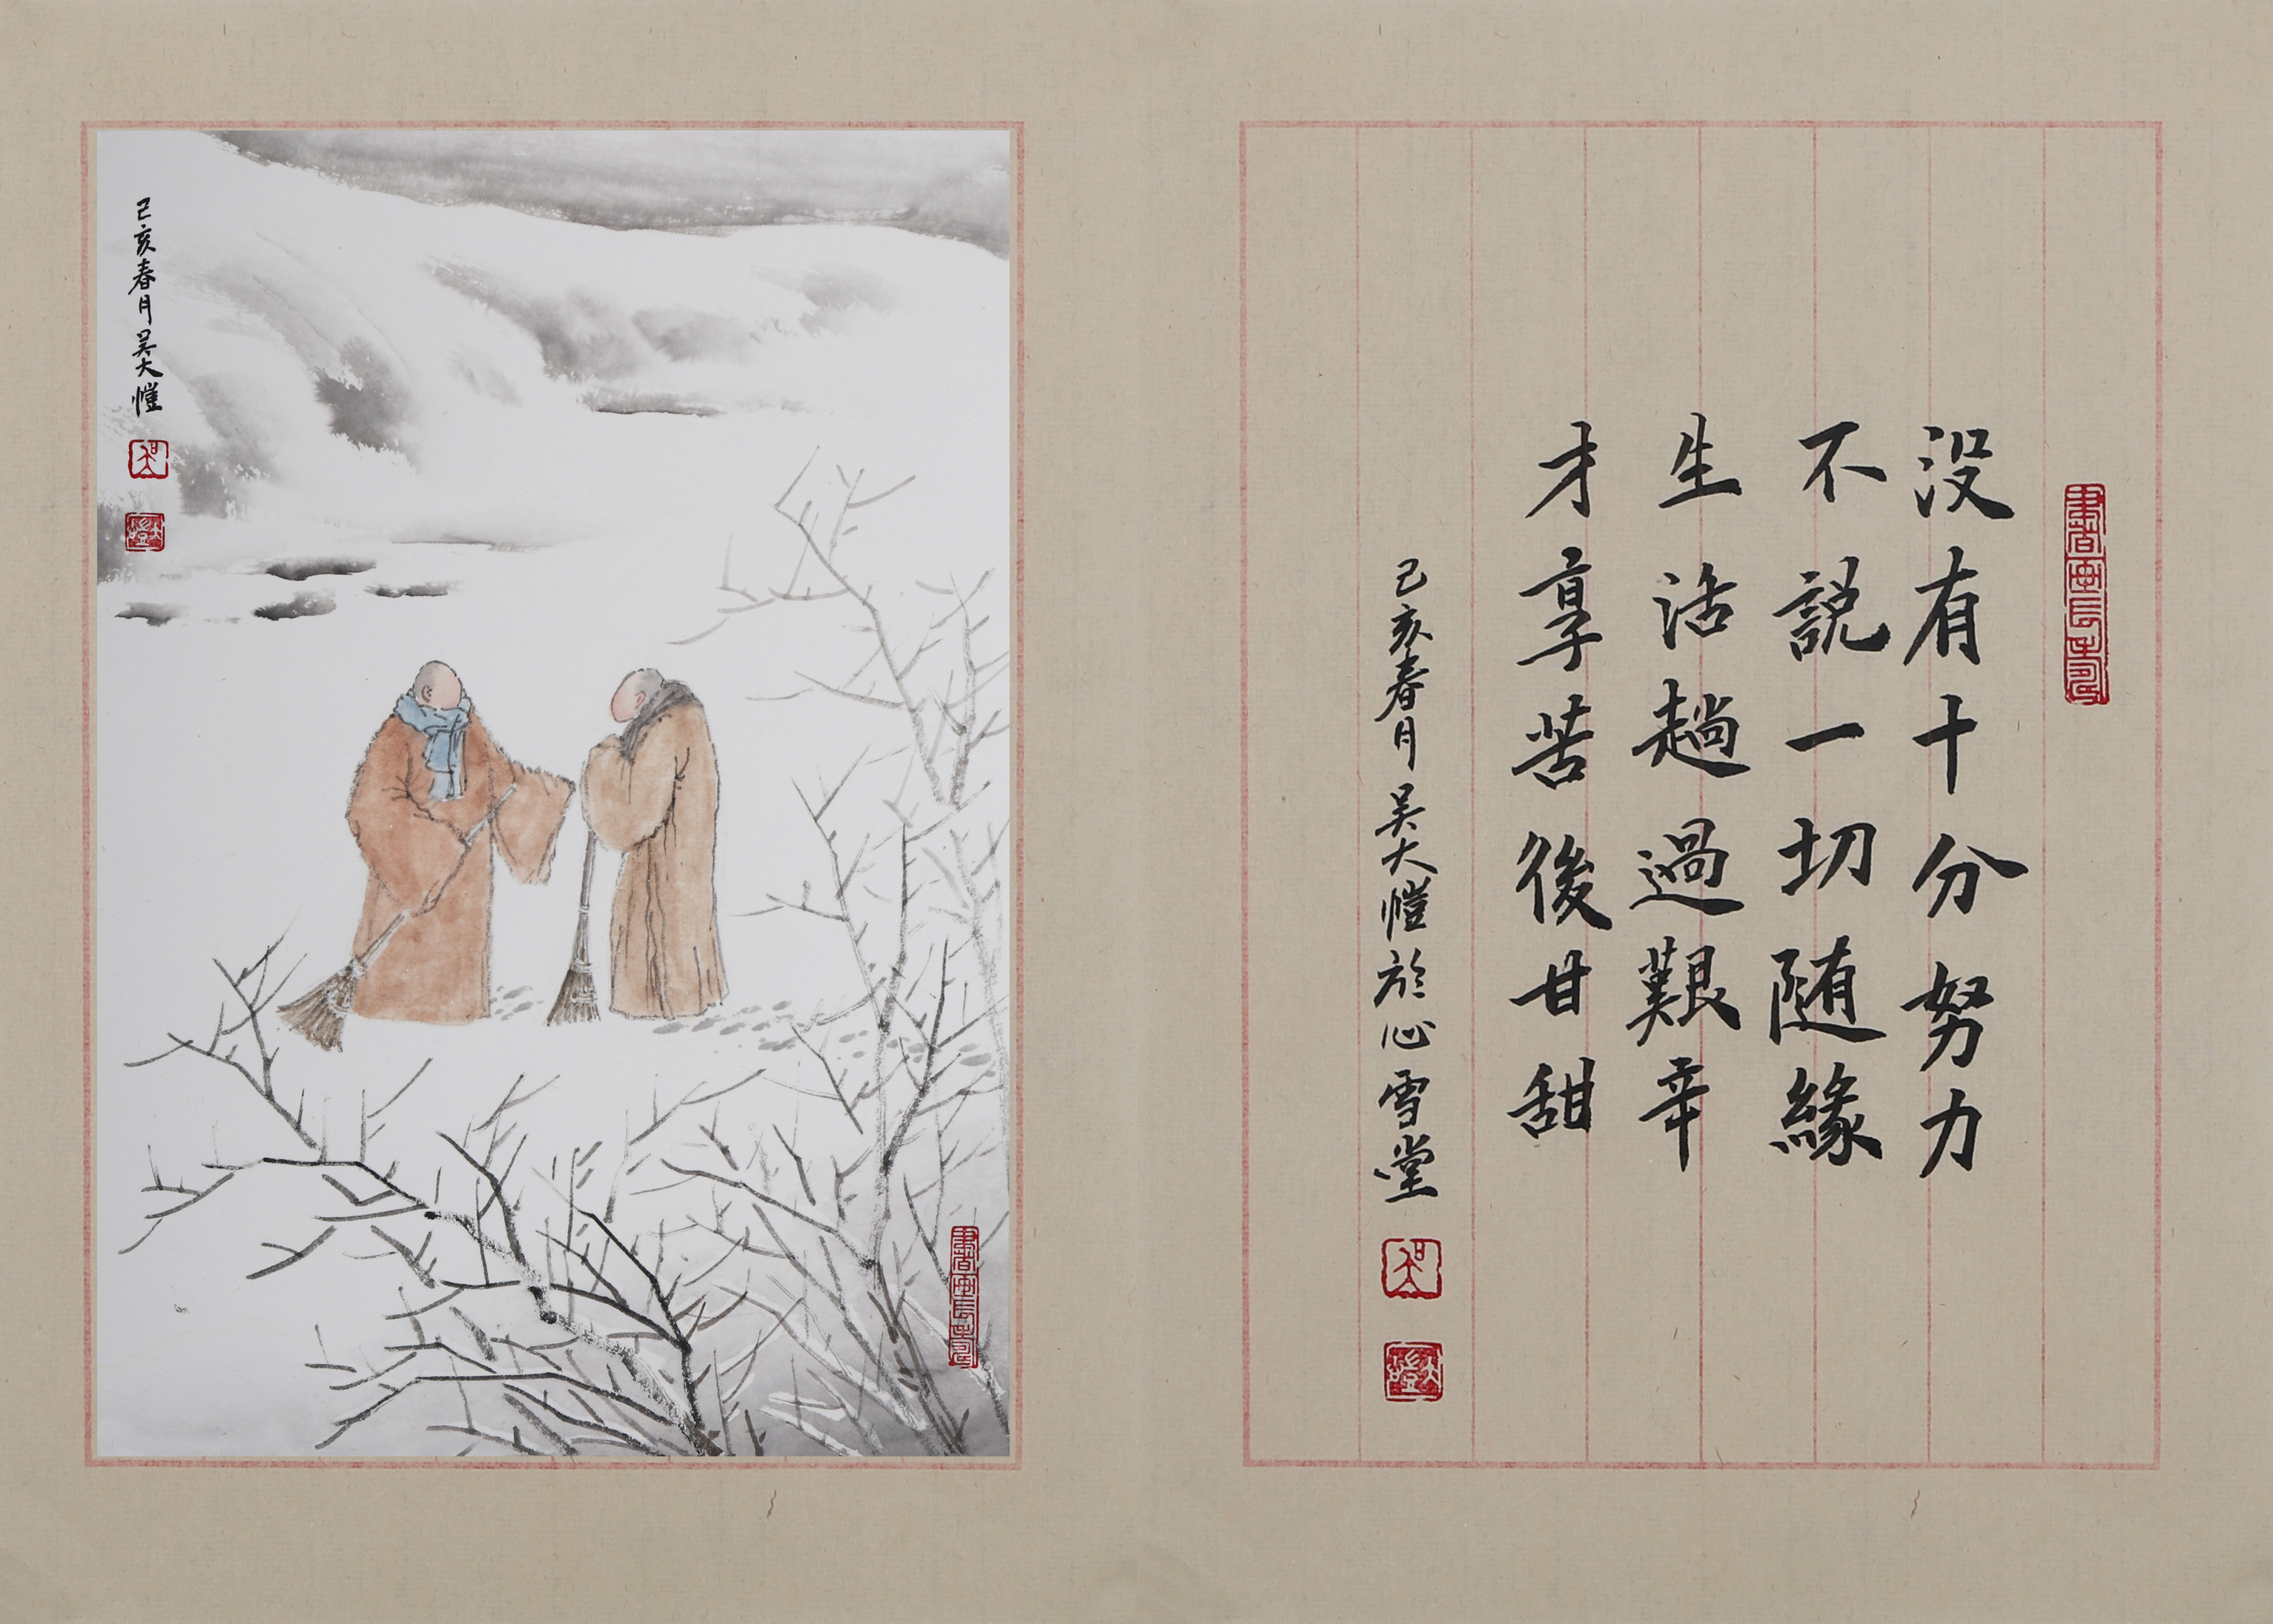 没有十分努力
不説一切随緣
生活趟過艱辛
才享苦後甘甜
己亥春月 吴大愷於心雪堂
己亥春月 吴大愷